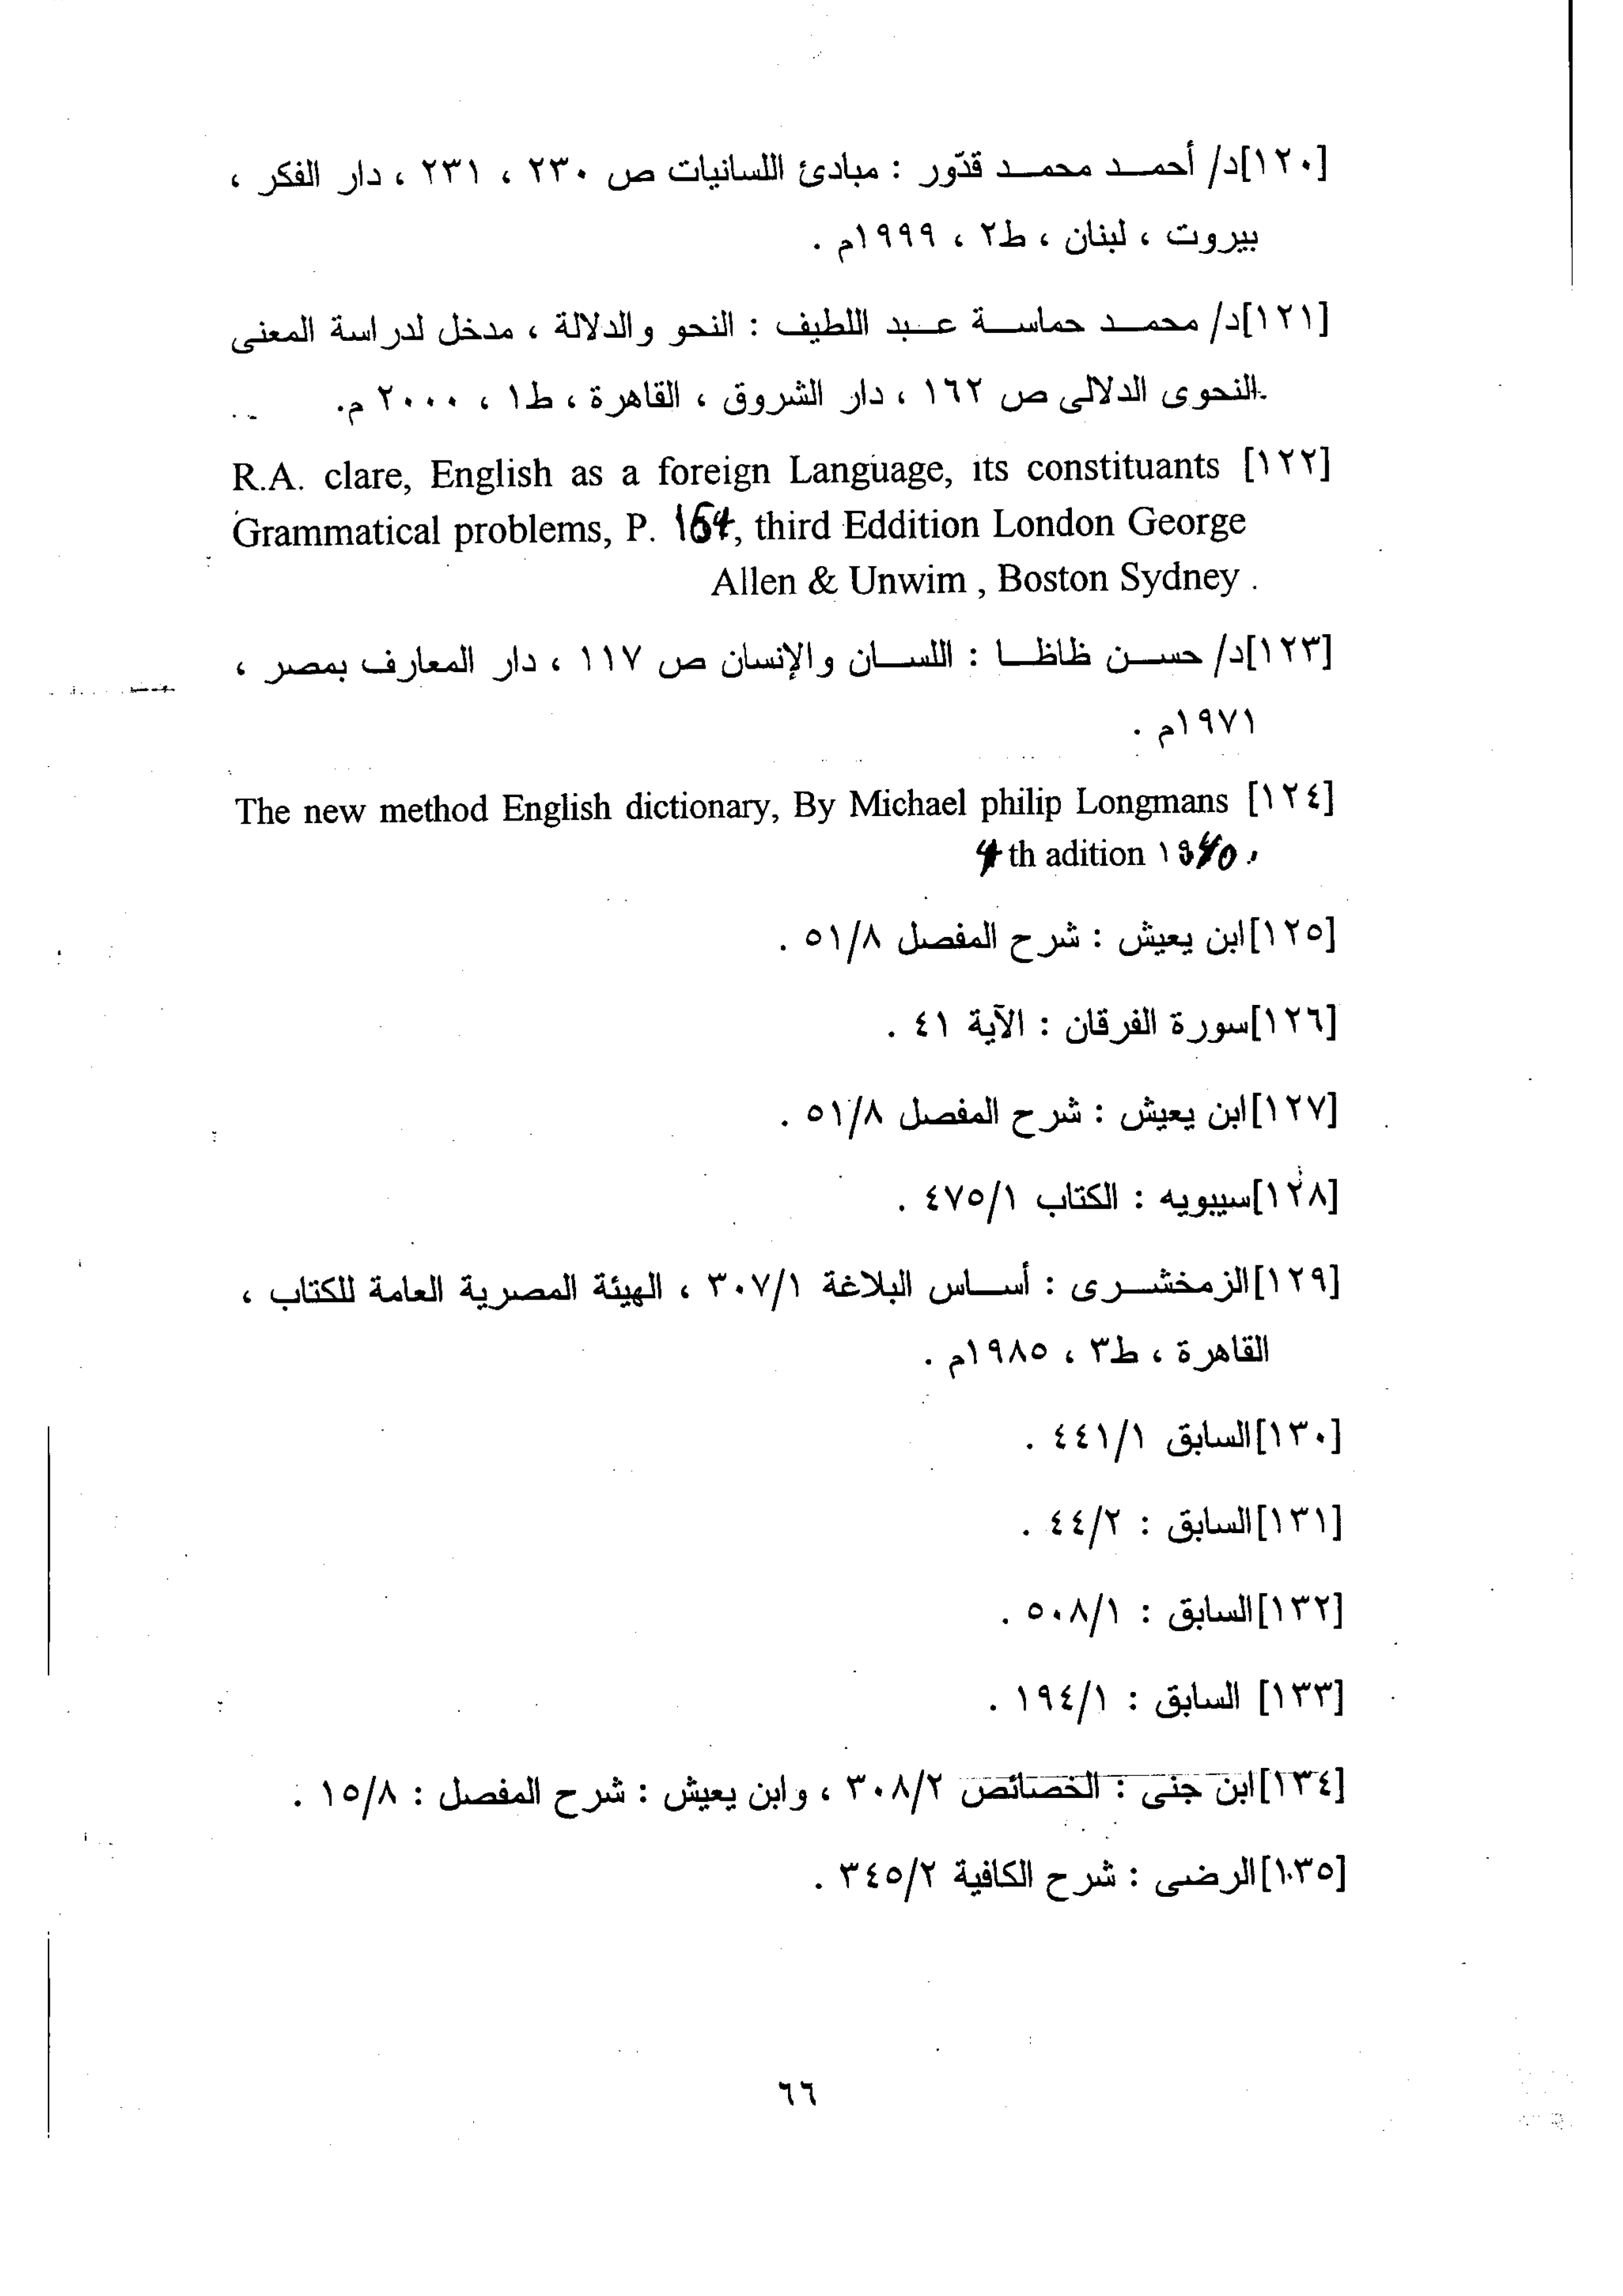 [١٢٠]د/ أحمد محمد قدّور : مبادئ اللسانيات ص ٢٣٠ ، ٢٣١ ، دار الفكر ،
بيروت ، لبنان ، ط٢ ، ١٩٩٩م .
[١٢١]د/ محمد حماسة عبد اللطيف : النحو والدلالة ، مدخل لدراسة المعنى
النحوى الدلالى ص ١٦٢ ، دار الشروق ، القاهرة ، ط١ ، ٢٠٠٠ م.
R.A. clare, English as a foreign Language, its constituants [١٢٢]
Grammatical problems, P. 164, third Eddition London George
Allen & Unwim , Boston Sydney .
[١٢٣]د/ حسن ظاظا : اللسان والإنسان ص ١١٧ ، دار المعارف بمصر ،
١٩٧١م .
The new method English dictionary, By Michael philip Longmans [١٢٤]
4 th adition
[١٢٥]ابن يعيش : شرح المفصل ٥١/٨ .
[١٢٦]سورة الفرقان : الآية ٤١ .
[١٢٧]ابن يعيش : شرح المفصل ٥١/٨ .
[١٢٨]سيبويه : الكتاب ٤٧٥/١ .
[١٢٩]الزمخشرى : أساس البلاغة ٣٠٧/١ ، الهيئة المصرية العامة للكتاب ،
القاهرة ، ط٣ ، ١٩٨٥م .
[١٣٠]السابق ٤٤١/١ .
[١٣١]السابق : ٤٤/٢ .
[١٣٢]السابق : ٥٠٨/١ .
[١٣٣] السابق : ١٩٤/١ .
[١٣٤]ابن جنى : الخصائص ٣٠٨/٢ ، وابن يعيش : شرح المفصل : ١٥/٨ .
[١٣٥]الرضى : شرح الكافية ٣٤٥/٢ .
٦٦